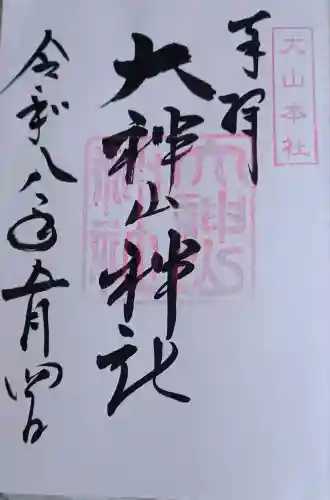 大山本社
奉拝
大神山神社
令和八年五月四日